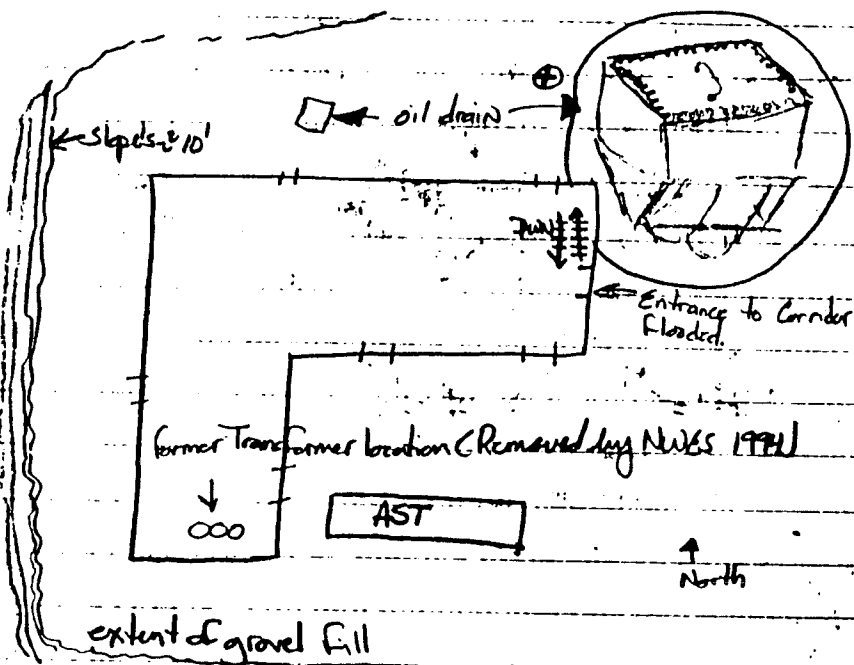 oil drain
slopes ≈ 10'
DWN
Entrance to Corridor
Flooded.
former Transformer location (Removed by NWES 1994)
AST
North
extent of gravel fill